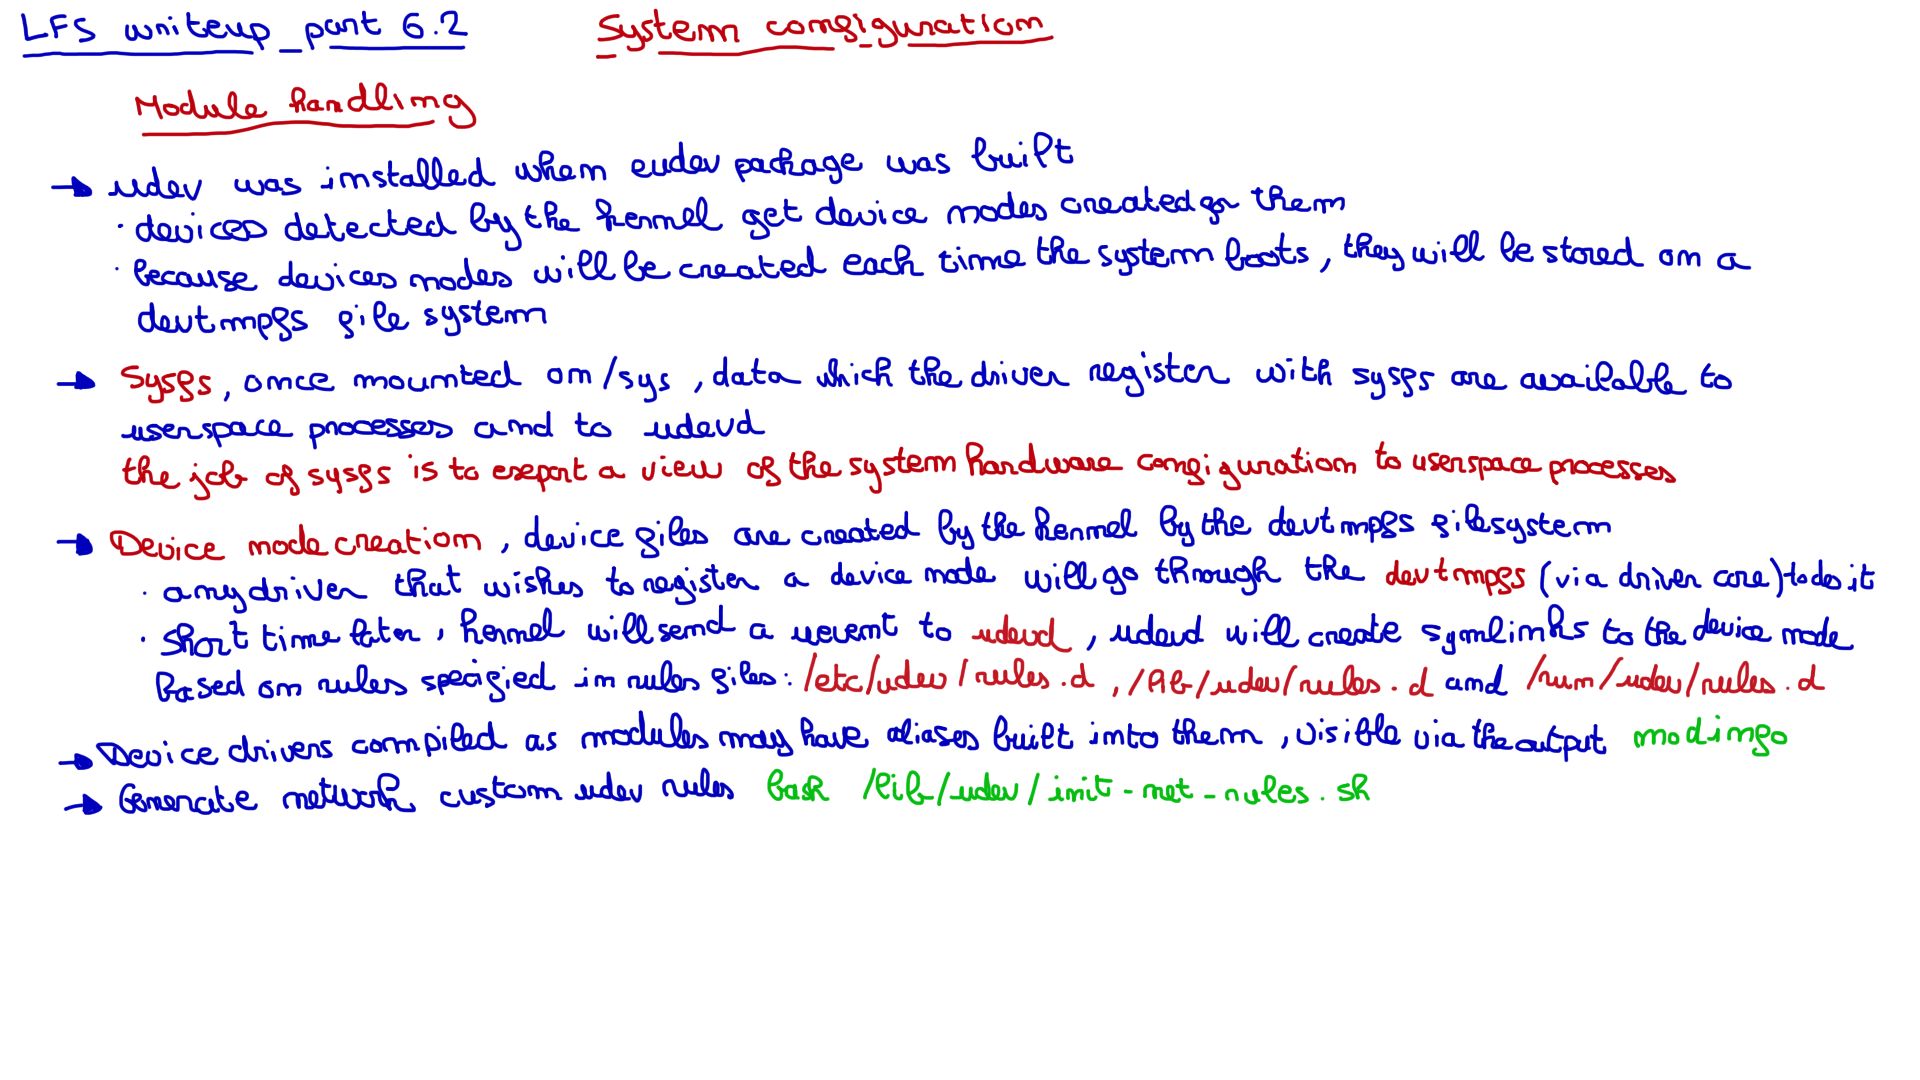 LFS writeup_part 6.2
System configuration
Module handling
→ udev was installed when eudev package was built
· devices detected by the kernel get device nodes created for them
· because devices nodes will be created each time the system boots, they will be stored on a
devtmpfs file system
→ Sysfs, once mounted on /sys, data which the driver register with sysfs are available to
userspace processes and to udevd
the job of sysfs is to export a view of the system hardware configuration to userspace processes
→ Device node creation, device files are created by the kernel by the devtmpfs filesystem
· any driver that wishes to register a device node will go through the devtmpfs (via driver core) to do it
· short time later, kernel will send a uevent to udevd, udevd will create symlinks to the device node
based on rules specified in rules files: /etc/udev/rules.d, /lib/udev/rules.d and /run/udev/rules.d
→ Device drivers compiled as modules may have aliases built into them, visible via the output modinfo
→ Generate network custom udev rules bash /lib/udev/init-net-rules.sh